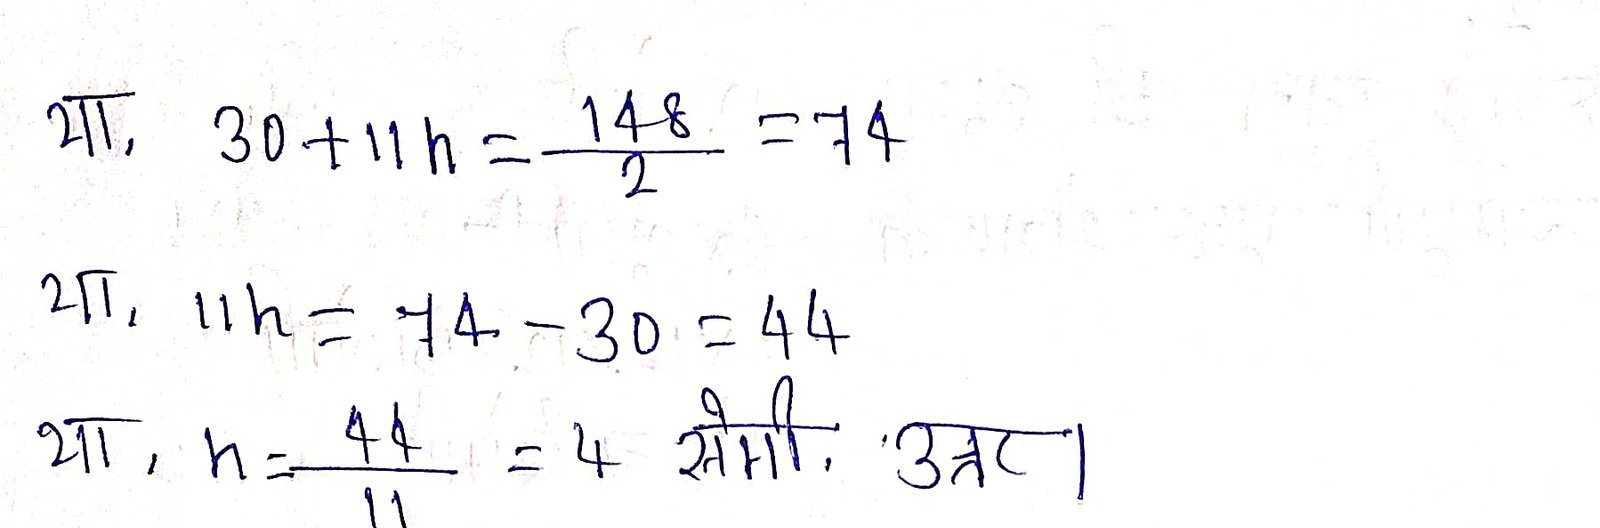 या, 30 + 11h = 148/2 = 74
या, 11h = 74 - 30 = 44
या, h = 44/11 = 4 सेमी. उत्तर।